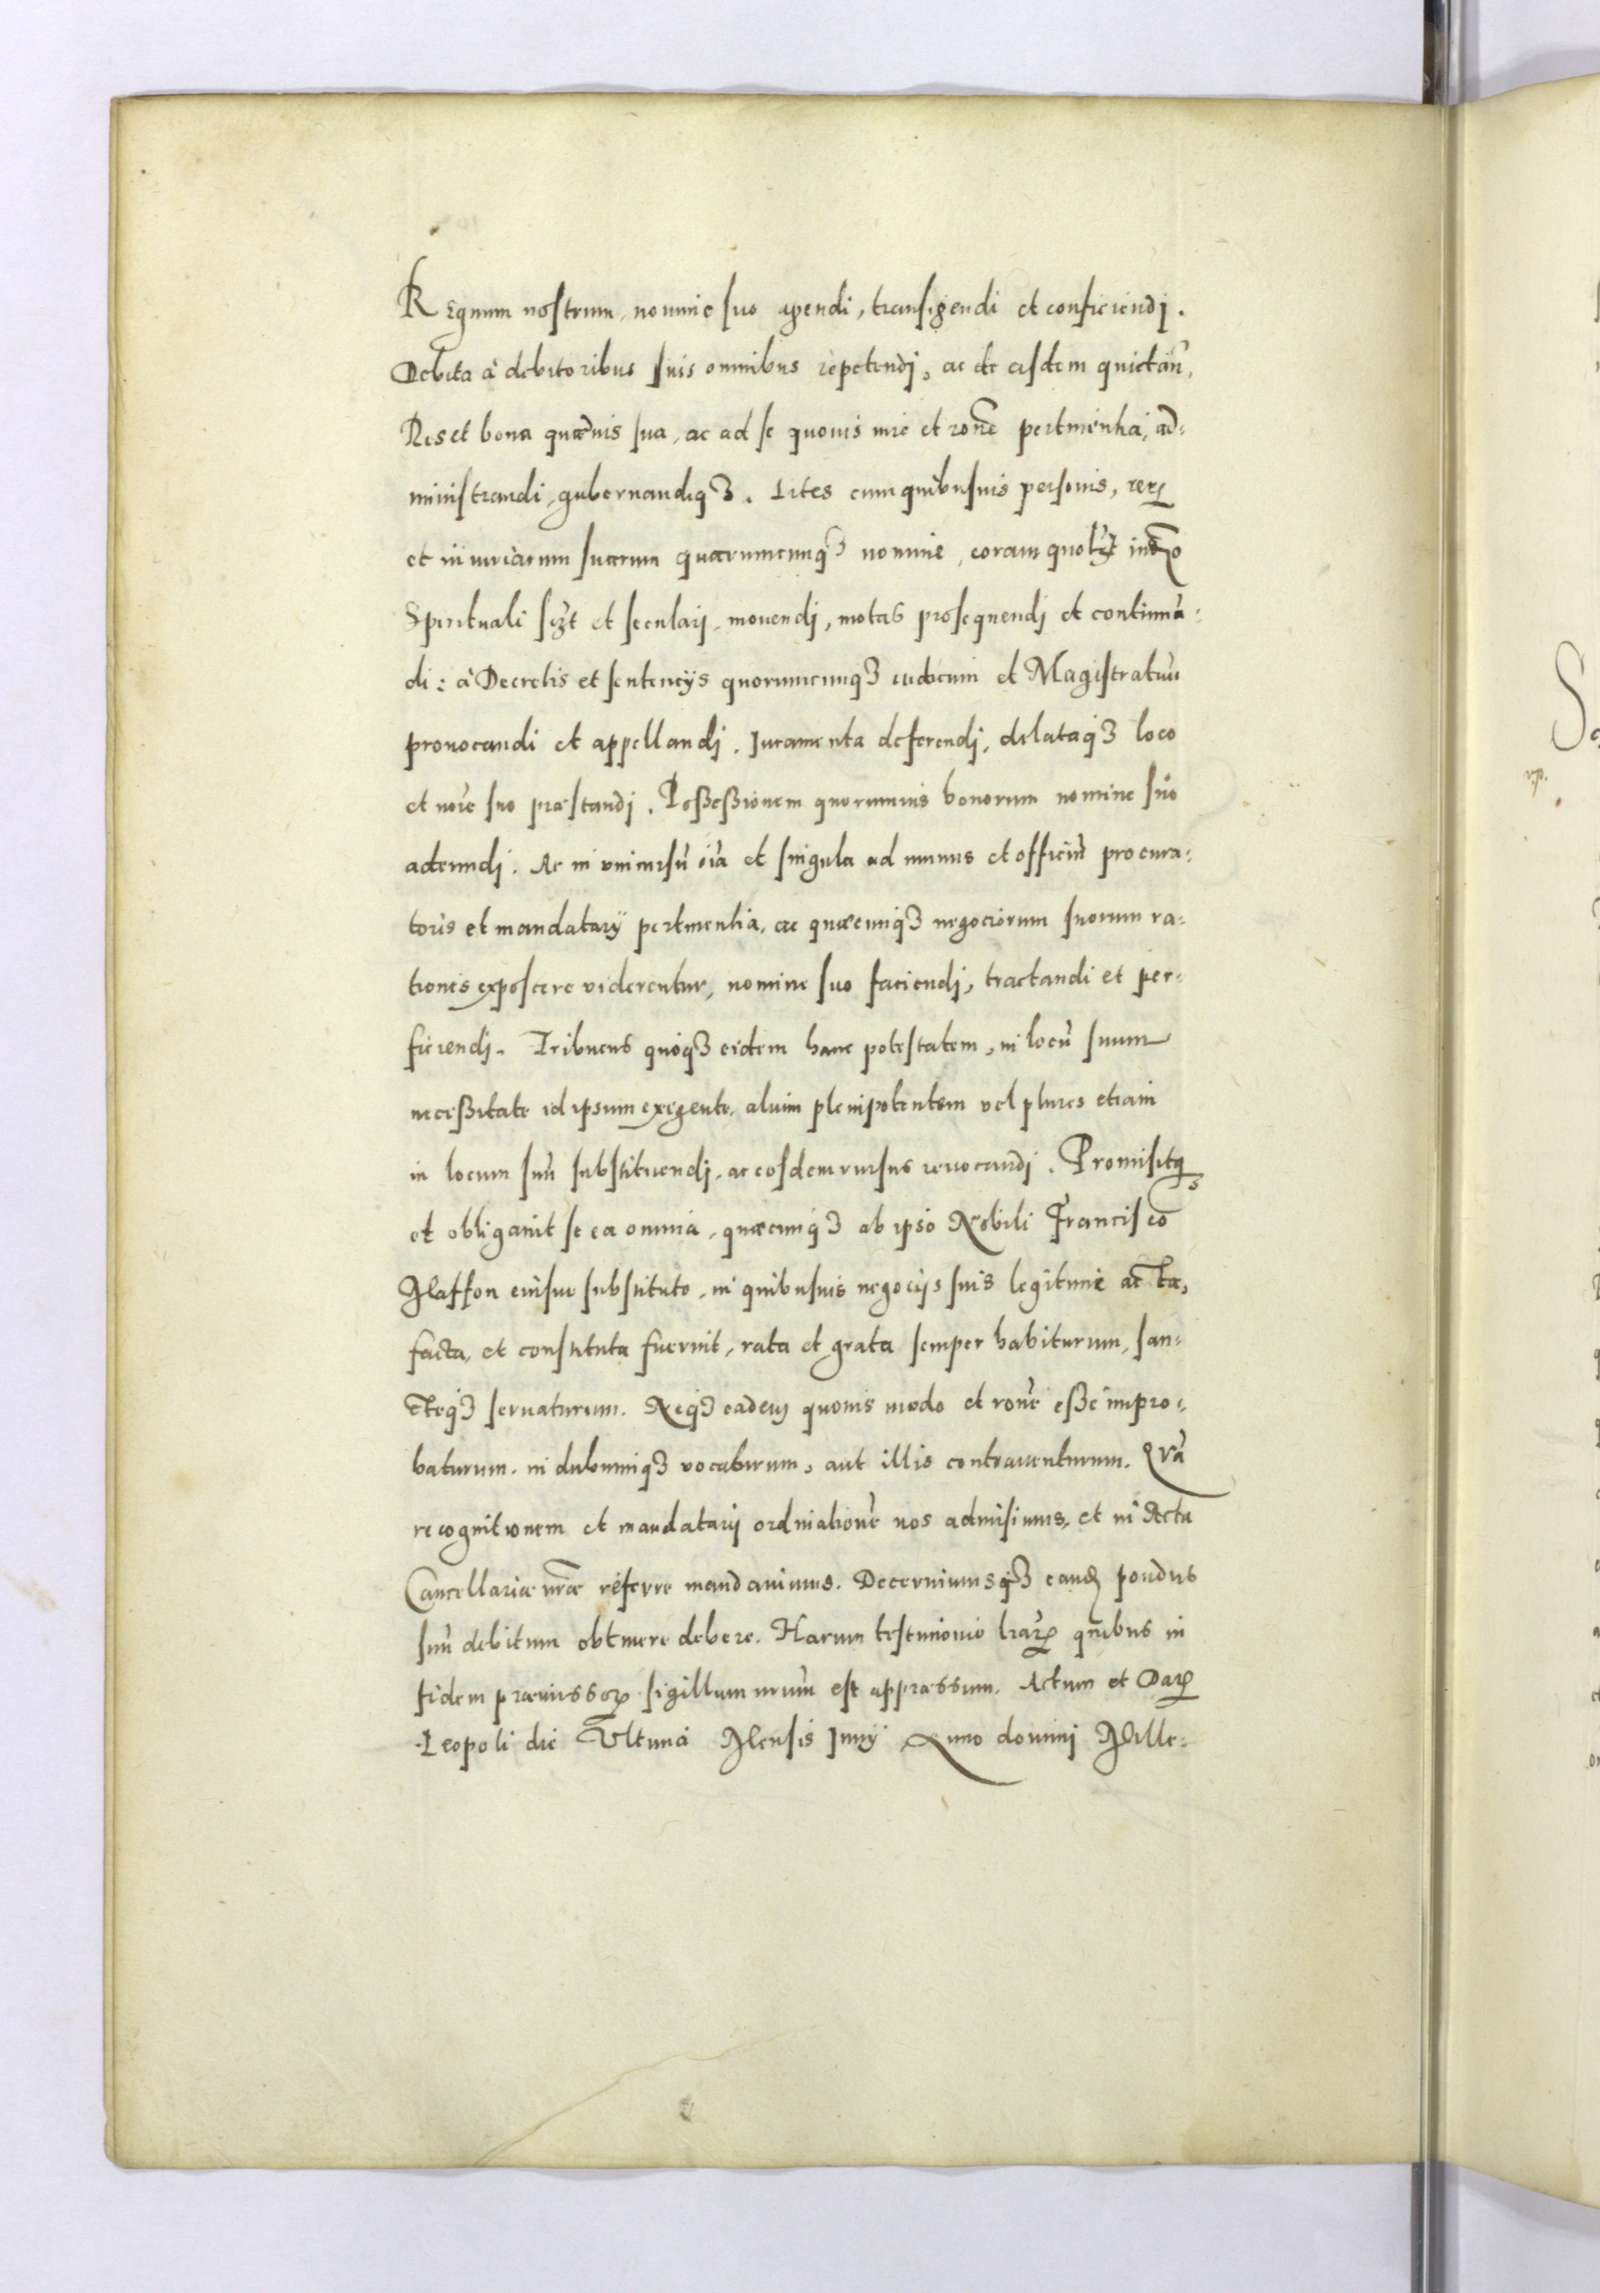 Regnum nostrum, nomine suo agendi, transigendi et conficiendj.
Debita à debitoribus suis omnibus repetendj, ac de eisdem quietan̄,
Res et bona quævis sua, ac ad se quovis iure et ron̄e pertinentia, ad-
ministrandi, gubernandiqꝫ. Lites cum quibusuis personis, reꝝ
et iniuriarum suarum quarumcunqꝫ nomine, coram quolꝫt
Spirituali sꝫt et seculari, mouendj, motas prosequendj et continuā-
di: à Decretis et sentencijs quorumcunqꝫ iudicum et Magistratuū
prouocandi et appellandj. Juramenta deferendj, delataqꝫ loco
et noīe suo præstandj. Poßeßionem quorumuis bonorum nomine suo
adeundj. Ac in uniuersū oīa et singula ad munus et officiū procura-
toris et mandatarÿ pertinentia, ac quæcunqꝫ negociorum suorum ra-
tiones exposcere viderentur, nomine suo faciendj, tractandi et per-
ficiendj. Tribuens quoqꝫ eidem hanc potestatem, in locū suum
neceßitate id ipsum exigente, alium plenipotentem vel plures etiam
in locum suū substituendj, ac eosdem rursus reuocandj. Promisitqꝫ
et obligauit se ea omnia, quæcunqꝫ ab ipso Nobili Francisco
Maffon eiusue substituto, in quibusuis negocijs suis legitime acta,
facta, et constituta fuerint, rata et grata semper habiturum, san-
cteqꝫ seruaturum. Neqꝫ eadem quouis modo et ron̄e eße impro-
baturum, in dubiumqꝫ vocaturum, aut illis contrauenturum. Quā
recognitionem et mandatarij ordinationē nos admisimus, et in Acta
Cancellariæ nr̄æ referre mandauimus. Decernimusqꝫ eandꝫ pondus
suū debitum obtinere debere. Harum testimonio lr̄aꝝ quibus in
fidem præmissoꝝ sigillum nr̄um est appræssum. Actum et Daꝝ
Leopoli die Vltima Mensis Junÿ Anno dominj Mille-